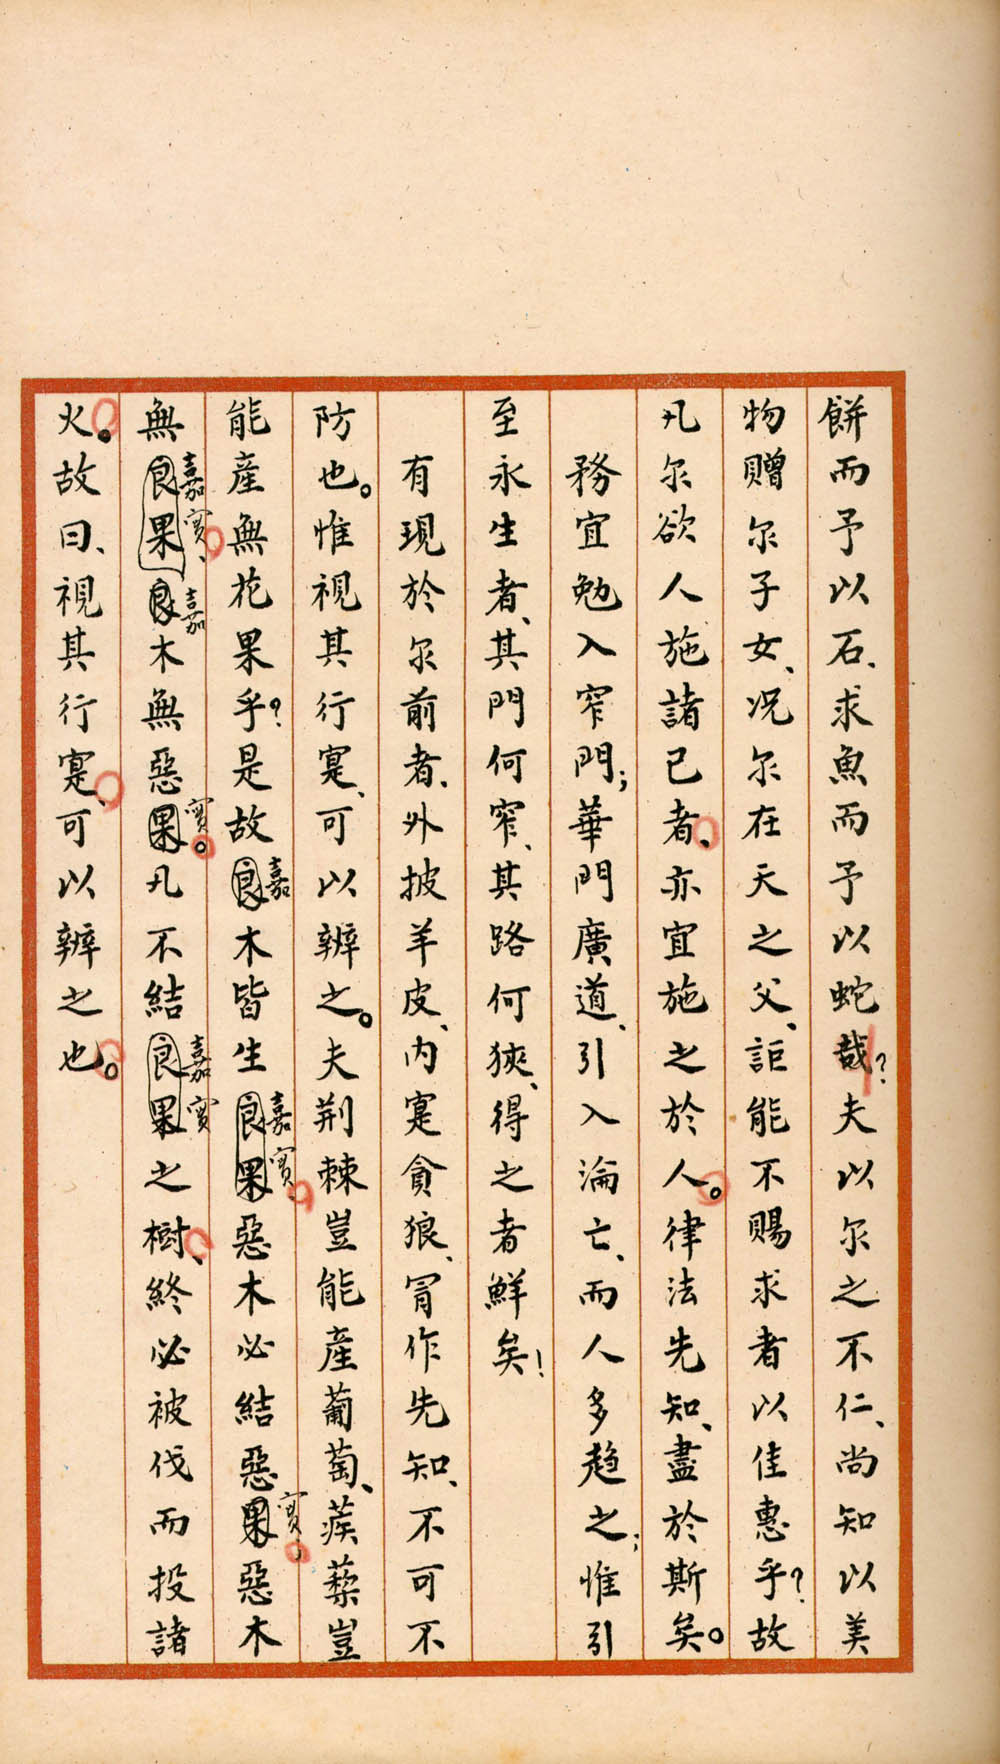 餅而予以石、求魚而予以蛇哉?夫以尔之不仁、尚知以美
物贈尔子女、况尔在天之父、詎能不賜求者以佳惠乎?故
凡尔欲人施諸己者、亦宜施之於人。律法先知、盡於斯矣。
務宜勉入窄門;華門廣道、引入淪亡、而人多趋之;惟引
至永生者、其門何窄、其路何狹、得之者鮮矣!
有現於尔前者、外披羊皮、内寔貪狼、冒作先知、不可不
防也。惟視其行寔、可以辨之。夫荆棘豈能產葡萄、蒺蔾豈
嘉 嘉實、 實;
能產無花果乎?是故良木皆生良果惡木必結惡果惡木
嘉實、 嘉 實。 嘉實
無良果良木無惡果凡不結良果之樹、終必被伐而投諸
火。故曰、視其行寔、可以辨之也。